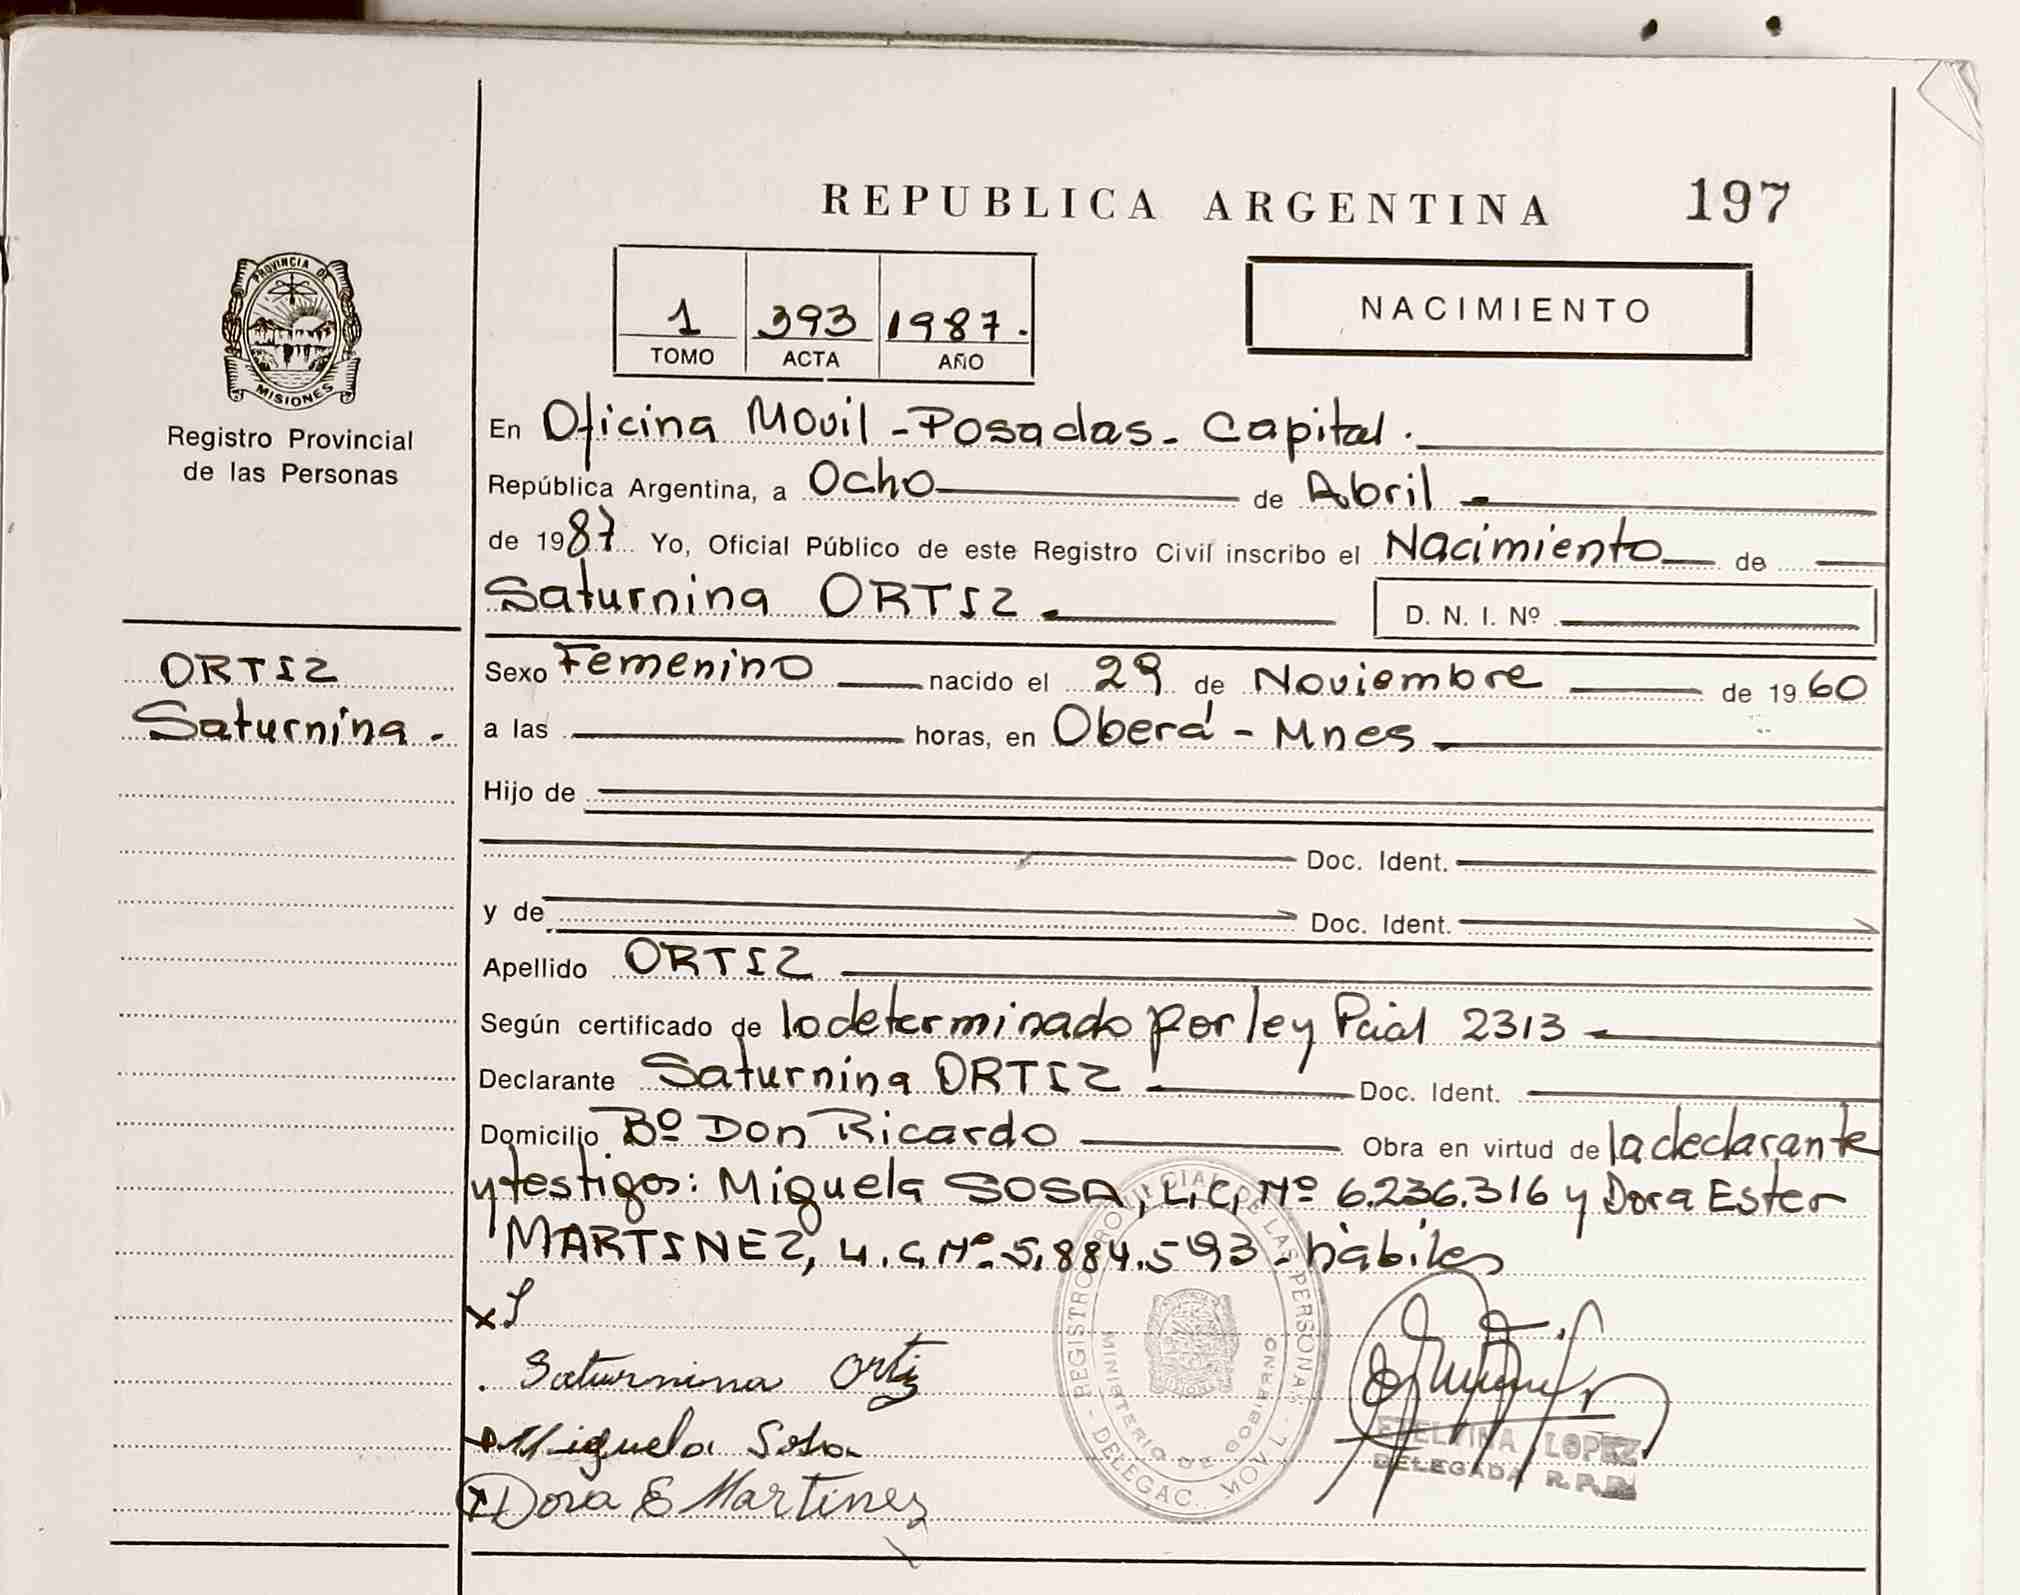 REPUBLICA ARGENTINA 197
PROVINCIA DE
MISIONES
Registro Provincial
de las Personas
1 393 1987.
TOMO ACTA AÑO
NACIMIENTO
En Oficina Movil - Posadas - Capital.
República Argentina, a Ocho de Abril
de 1987 Yo, Oficial Público de este Registro Civil inscribo el Nacimiento de
Saturnina ORTIZ
D. N. I. Nº
ORTIZ
Saturnina.
Sexo Femenino nacido el 29 de Noviembre de 1960
a las horas, en Oberá - Mnes
Hijo de
Doc. Ident.
y de Doc. Ident.
Apellido ORTIZ
Según certificado de lo determinado por ley Pcial 2313
Declarante Saturnina ORTIZ Doc. Ident.
Domicilio Bº Don Ricardo Obra en virtud de la declarante
y testigos: Miguela SOSA, L.C. Nº 6.236.316 y Dora Ester
MARTINEZ, L.C. Nº 5.884.593 - hábiles
x S
Saturnina Ortiz
Miguela Sosa
x Dora E Martinez
REGISTRO PROVINCIAL DE LAS PERSONAS
MINISTERIO DE GOBIERNO
DELEGAC. MOVIL
LOPEZ
DELEGADA R.P.P.